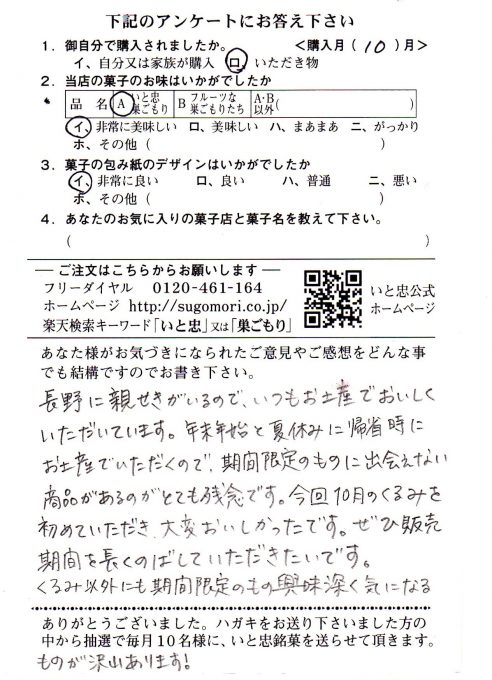 下記のアンケートにお答え下さい
1．御自分で購入されましたか。　＜購入月（10）月＞
イ、自分又は家族が購入　ロ、いただき物
2．当店の菓子のお味はいかがでしたか
品　名　A いと忠巣ごもり　B フルーツな巣ごもりたち　A・B以外（　）
イ、非常に美味しい　ロ、美味しい　ハ、まあまあ　ニ、がっかり
ホ、その他（　）
3．菓子の包み紙のデザインはいかがでしたか
イ、非常に良い　ロ、良い　ハ、普通　ニ、悪い
ホ、その他（　）
4．あなたのお気に入りの菓子店と菓子名を教えて下さい。
（　）
― ご注文はこちらからお願いします ―
フリーダイヤル　0120-461-164
ホームページ　http://sugomori.co.jp/
楽天検索キーワード「いと忠」又は「巣ごもり」
いと忠公式
ホームページ
あなた様がお気づきになられたご意見やご感想をどんな事
でも結構ですのでお書き下さい。
長野に親せきがいるので、いつもお土産でおいしく
いただいています。年末年始と夏休みに帰省時に
お土産でいただくので、期間限定のものに出会えない
商品があるのがとても残念です。今回10月のくるみを
初めていただき、大変おいしかったです。ぜひ販売
期間を長くのばしていただきたいです。
くるみ以外にも期間限定のもの興味深く気になる
ありがとうございました。ハガキをお送り下さいました方の
中から抽選で毎月10名様に、いと忠銘菓を送らせて頂きます。
ものが沢山あります!